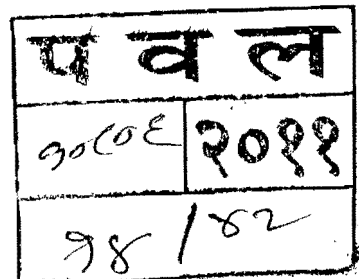 प व ल
१०८०६ २०११
१४/४२